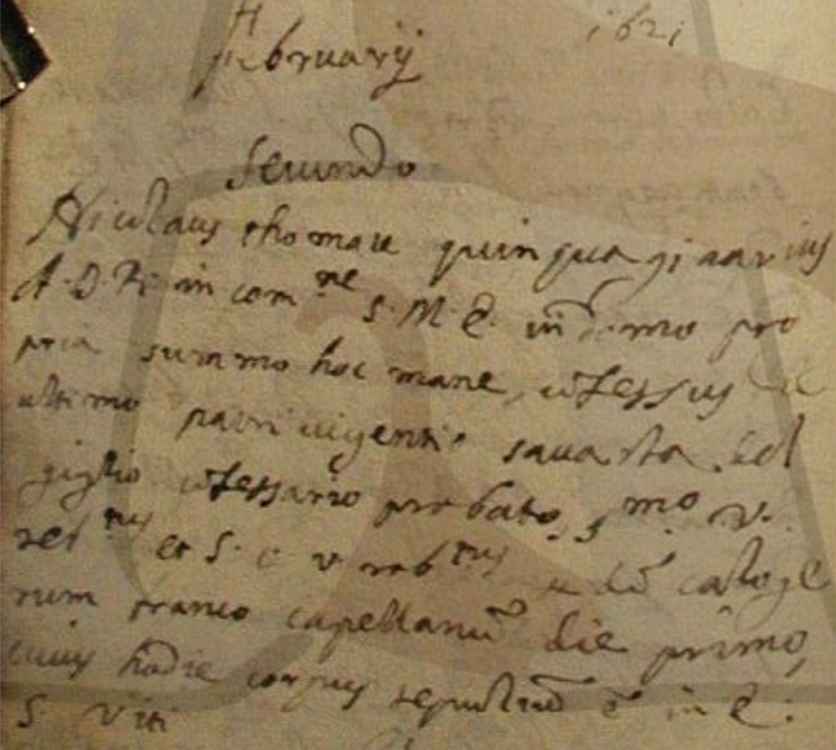 1621
Februarij
secundo
Nicolaus thomace quinquaginarius
A. D. R. in com.ne S. M. E. in domo pro
pria summo hoc mane, cōfessus
ultimo patri vigentio savasta del
giglio cōfessario probato, s.mo v.
ref.tus et S. o. v rob.tus p dō caloge
rum franco capellanū die primo,
cuius hodie corpus sepultū ē in E.
S. Viti